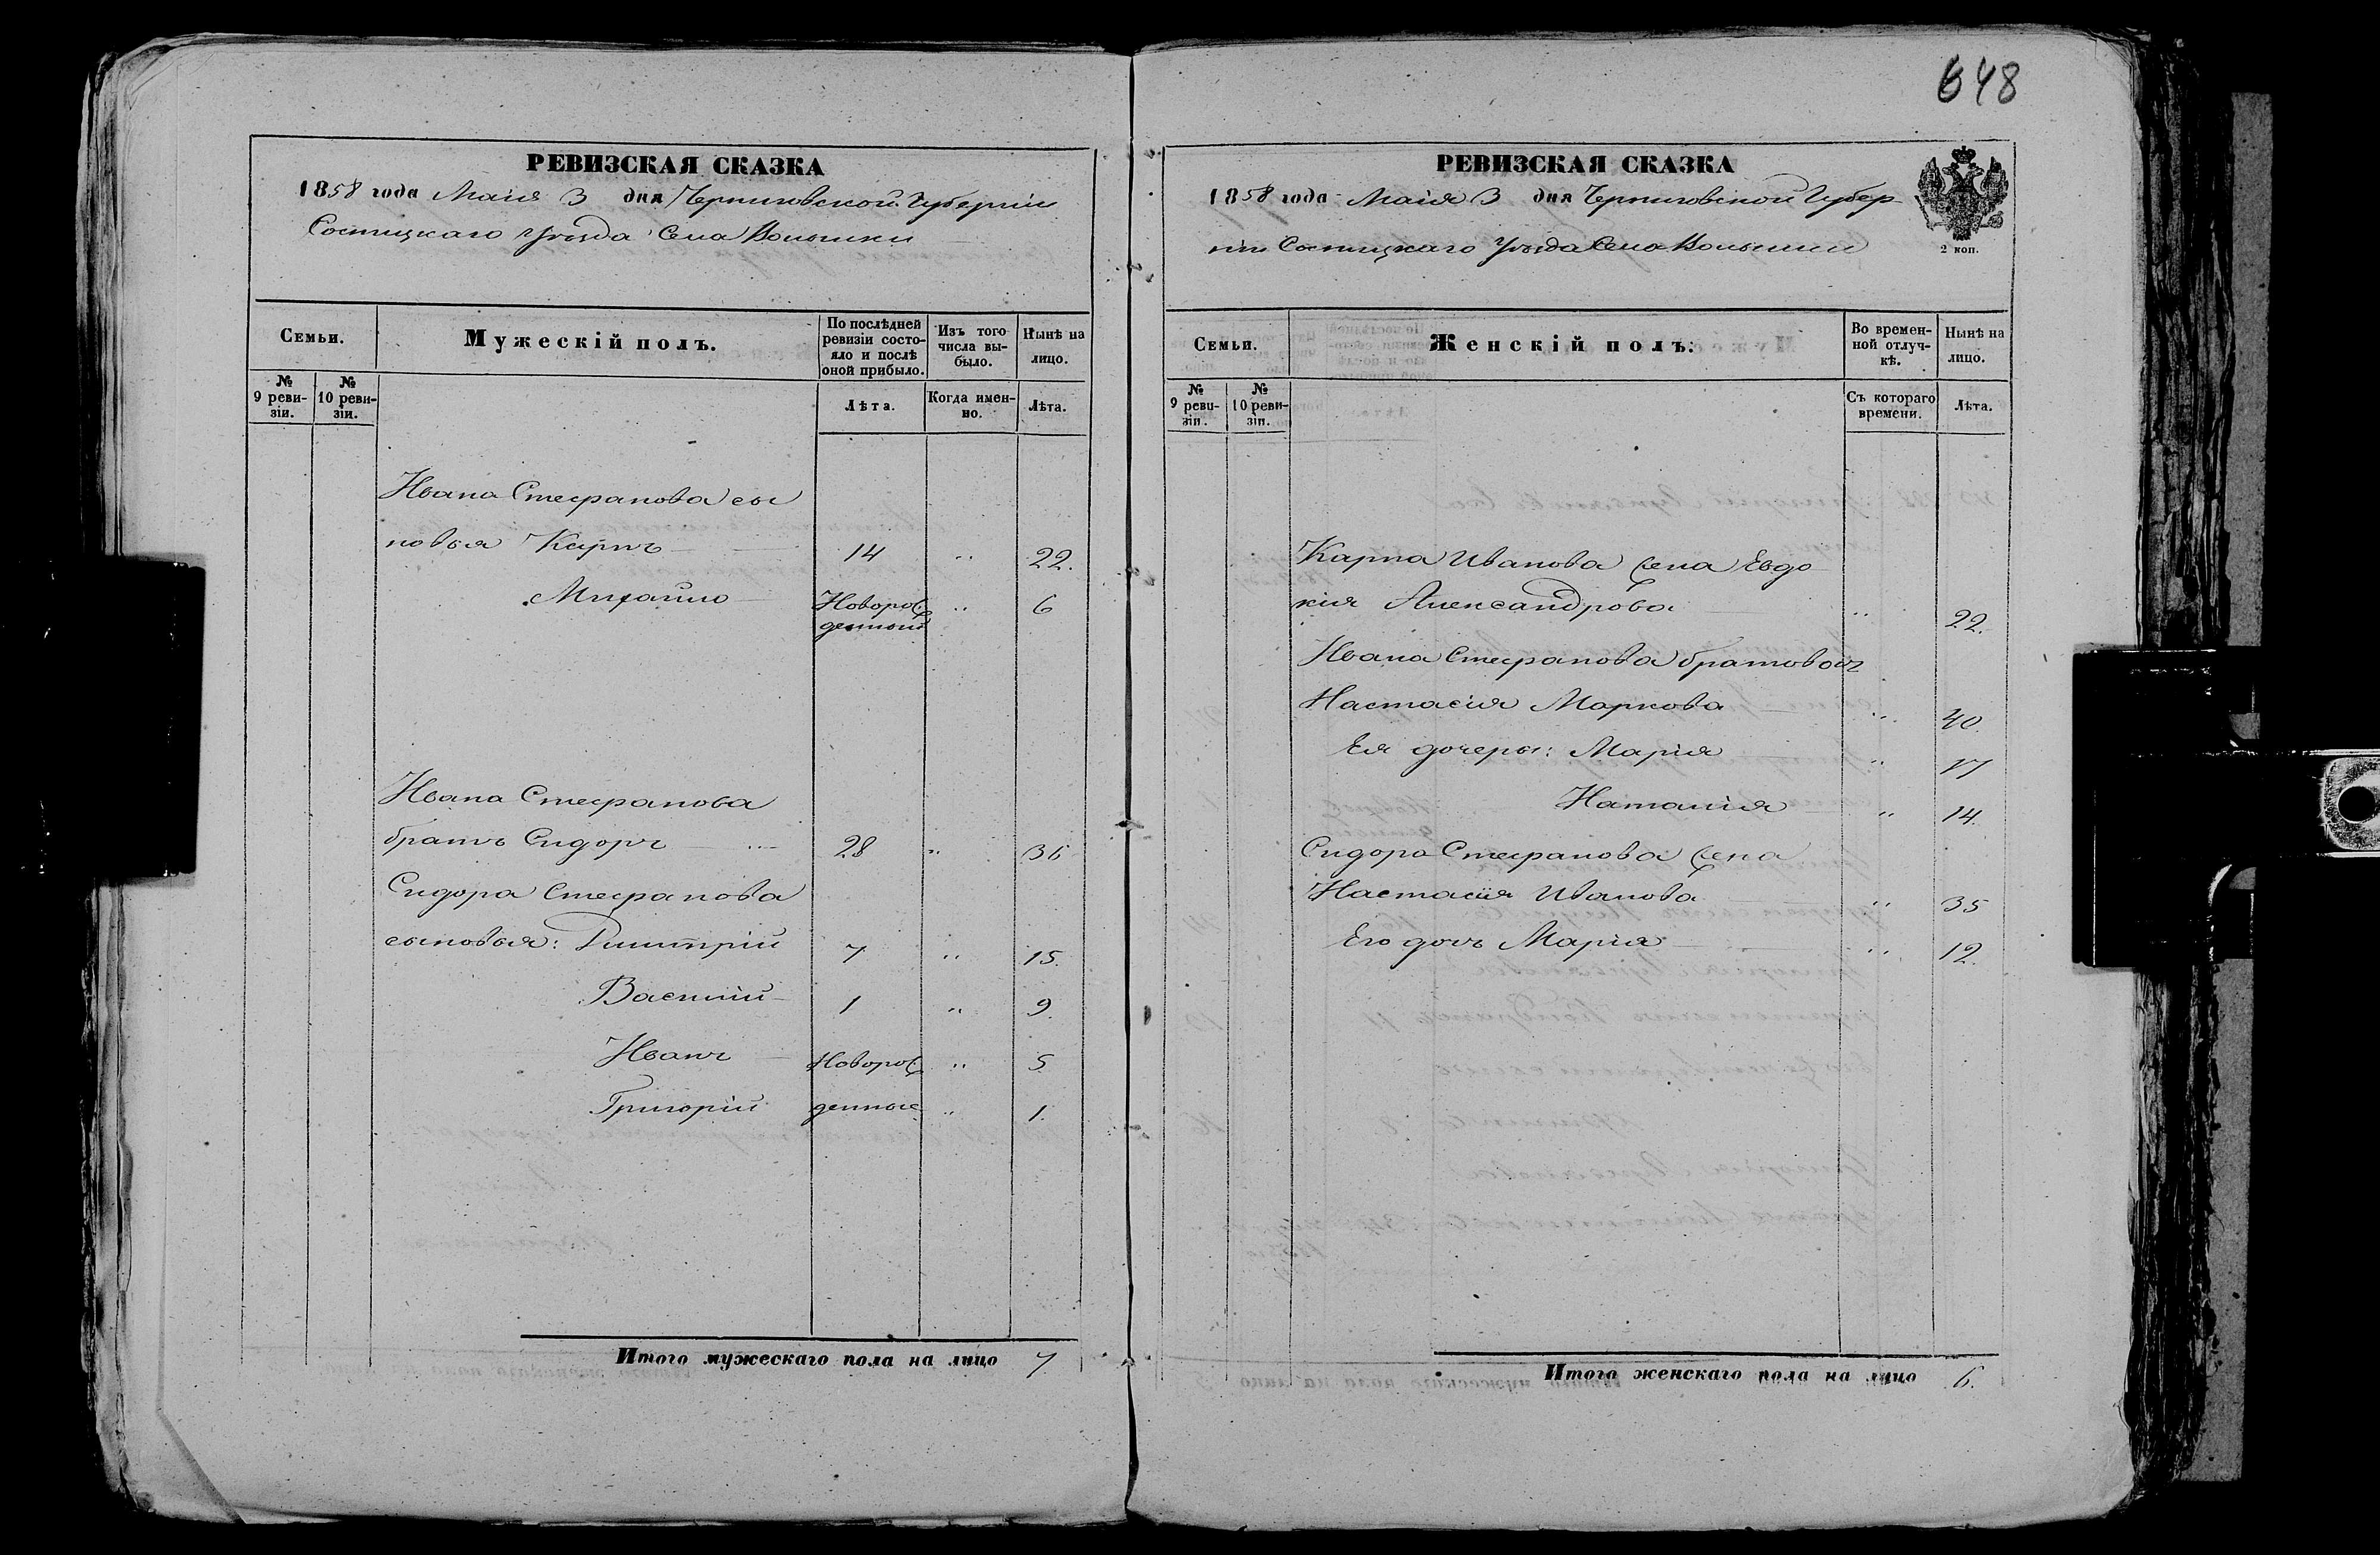 648
РЕВИЗСКАЯ СКАЗКА
1858 года Маія 3 дня Черниговской Губерніи
Сосницкаго Уѣзда Села Волынки
Семьи.
Мужескій полъ.
По послѣдней ревизіи состояло и послѣ оной прибыло.
Изъ того числа выбыло.
Нынѣ на лицо.
№ 9 ревизіи.
№ 10 ревизіи.
Лѣта.
Когда именно.
Лѣта.
Ивана Стефанова сы
новья Карпъ 14 „ 22.
Михайло Новорож „ 6
денный
Ивана Стефанова
братъ Сидоръ 28 „ 36
Сидора Стефанова
сыновья: Димитрій 7 „ 15.
Василій 1 „ 9.
Иванъ Новорож „ 5
Григорій денные „ 1.
Итого мужескаго пола на лицо 7.
РЕВИЗСКАЯ СКАЗКА
1858 года Маія 3 дня Черниговской Губер
ніи Сосницкаго Уѣзда Села Волынки
2 коп.
Семьи.
Женскій полъ.
Во временной отлучкѣ.
Нынѣ на лицо.
№ 9 ревизіи.
№ 10 ревизіи.
Съ котораго времени.
Лѣта.
Карпа Иванова жена Евдо
кія Александрова „ 22.
Ивана Стефанова братова
Настасія Маркова „ 40.
Ея дочери: Марія „ 17
Наталія „ 14.
Сидора Стефанова жена
Настасія Иванова „ 35
Его дочь Марія „ 12.
Итого женскаго пола на лицо 6.